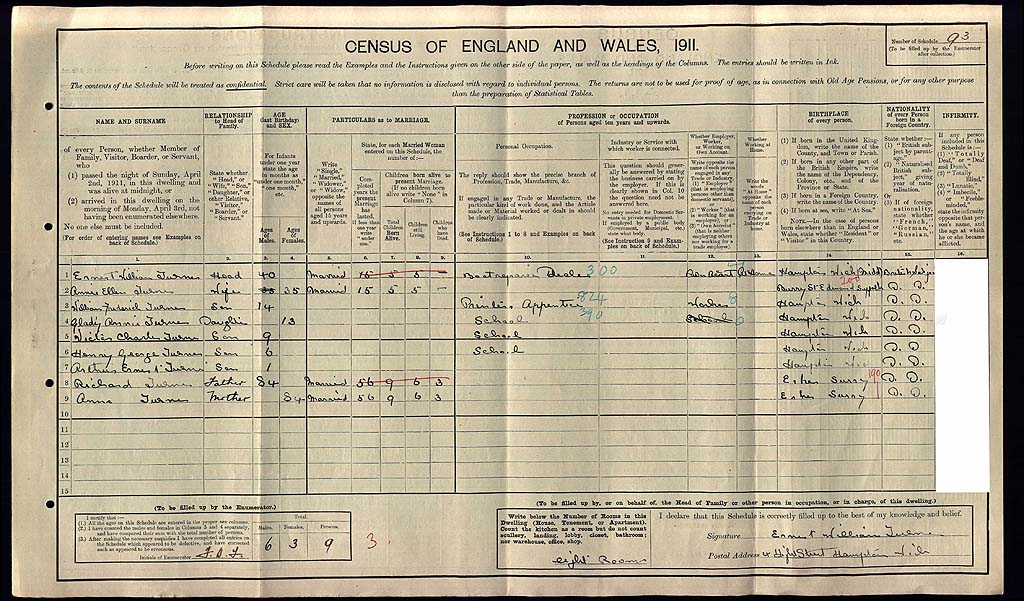 CENSUS OF ENGLAND AND WALES, 1911.
Number of Schedule 93
(To be filled up by the Enumerator
after collection.)
Before writing on this Schedule please read the Examples and the Instructions given on the other side of the paper, as well as the headings of the Columns. The entries should be written in Ink.
The contents of the Schedule will be treated as confidential. Strict care will be taken that no information is disclosed with regard to individual persons. The returns are not to be used for proof of age, as in connection with Old Age Pensions, or for any other purpose
than the preparation of Statistical Tables.
NAME AND SURNAME
of every Person, whether Member of
Family, Visitor, Boarder, or Servant,
who
(1) passed the night of Sunday, April
2nd, 1911, in this dwelling and
was alive at midnight, or
(2) arrived in this dwelling on the
morning of Monday, April 3rd, not
having been enumerated elsewhere.
No one else must be included.
(For order of entering names see Examples on
back of Schedule.)
RELATIONSHIP
to Head of
Family.
State whether
"Head," or
"Wife," "Son,"
"Daughter," or
other Relative,
"Visitor,"
"Boarder," or
"Servant."
AGE
(last Birthday)
and SEX.
For Infants
under one year
state the age
in months as
"under one
month," "one
month," etc.
Ages
of
Males.
Ages
of
Females.
PARTICULARS as to MARRIAGE.
Write
"Single,"
"Married,"
"Widower,"
or "Widow,"
opposite the
names of
all persons
aged 15 years
and upwards.
State, for each Married Woman
entered on this Schedule, the
number of:—
Completed
years the
present
Marriage
has
lasted.
If less than
one year
write
"under
one."
Children born alive to
present Marriage.
(If no children
born alive write "None" in
Column 7).
Total
Children
Born
Alive.
Children
still
Living.
Children
who
have
Died.
PROFESSION or OCCUPATION
of Persons aged ten years and upwards.
Personal Occupation.
The reply should show the precise branch of
Profession, Trade, Manufacture, &c.
If engaged in any Trade or Manufacture, the
particular kind of work done, and the Article
made or Material worked or dealt in should
be clearly indicated.
(See Instructions 1 to 8 and Examples on back
of Schedule.)
Industry or Service
with which worker is connected.
This question should generally
be answered by stating
the business carried on by
the employer. If this is
clearly shown in Col. 10
the question need not be
answered here.
No entry needed for Domestic Servants
in private employment.
If employed by a public body
(Government, Municipal, etc.)
state what body.
(See Instruction 9 and Examples
on back of Schedule.)
Whether Employer,
Worker, or
Working on Own
Account.
Whether
Working at
Home.
Write the
words
"At Home"
opposite the
name of each
person
carrying on
Trade or
Industry at
Home.
BIRTHPLACE
of every person.
(1) If born in the United Kingdom,
write the name of the
County, and Town or Parish.
(2) If born in any other part of
the British Empire, write the
name of the Dependency,
Colony, etc., and of the
Province or State.
(3) If born in a Foreign Country,
write the name of the Country.
(4) If born at sea, write "At Sea."
NOTE.—In the case of persons
born elsewhere than in England or
Wales, state whether "Resident" or
"Visitor" in this Country.
NATIONALITY
of every Person
born in a
Foreign Country.
State whether:—
(1) "British
subject by
parentage,"
(2) "Naturalised
British
subject," giving
year of
naturalisation.
(3) If of foreign
nationality,
state whether
"French,"
"German,"
"Russian,"
etc.
INFIRMITY.
If any person
included in this
Schedule is:—
(1) "Totally
Deaf," or "Deaf
and Dumb,"
(2) "Totally
Blind,"
(3) "Lunatic,"
(4) "Imbecile,"
or "Feeble-minded,"
state the infirmity
opposite that
person's name,
and the age at
which he or she
became afflicted.
1. 2. 3. 4. 5. 6. 7. 8. 9. 10. 11. 12. 13. 14. 15. 16.
1 Ernest William Turner Head 40 Married 15 5 5 - 300 Own Account At Home Hampton Wick
2 Annie Ellen Turner Wife 35 Married 15 5 5 - Burry St Edmund
3 William Frederick Turner Son 14 Printers Apprentice 824 Worker 8 Hampton Wick D. D.
4 Gladys Annie Turner Daughter 13 School 390 School Hampton Wick D. D.
5 Victor Charles Turner Son 9 School Hampton Wick D. D.
6 Henry George Turner Son 6 School Hampton Wick D. D.
7 Arthur Ernest Turner Son 1 Hampton Wick D. D.
8 Richard Turner Father 84 Married 56 9 6 3 Esher Surry 190 D. D.
9 Anna Turner Mother 84 Married 56 9 6 3 Esher Surry D. D.
10
11
12
13
14
15
(To be filled up by the Enumerator.)
I certify that:—
(1.) All the ages on this Schedule are entered in the proper sex columns.
(2.) I have counted the males and females in Columns 3 and 4 separately,
and have compared their sum with the total number of persons.
(3.) After making the necessary enquiries I have completed all entries on
the Schedule which appeared to be defective, and have corrected
such as appeared to be erroneous.
Initials of Enumerator
Total.
Males. Females. Persons.
6 3 9 3.
(To be filled up by, or on behalf of, the Head of Family or other person in occupation, or in charge, of this dwelling.)
Write below the Number of Rooms in this
Dwelling (House, Tenement, or Apartment).
Count the kitchen as a room but do not count
scullery, landing, lobby, closet, bathroom;
nor warehouse, office, shop.
eight Rooms
I declare that this Schedule is correctly filled up to the best of my knowledge and belief.
Signature Ernest William Turner
Postal Address High Street Hampton Wick